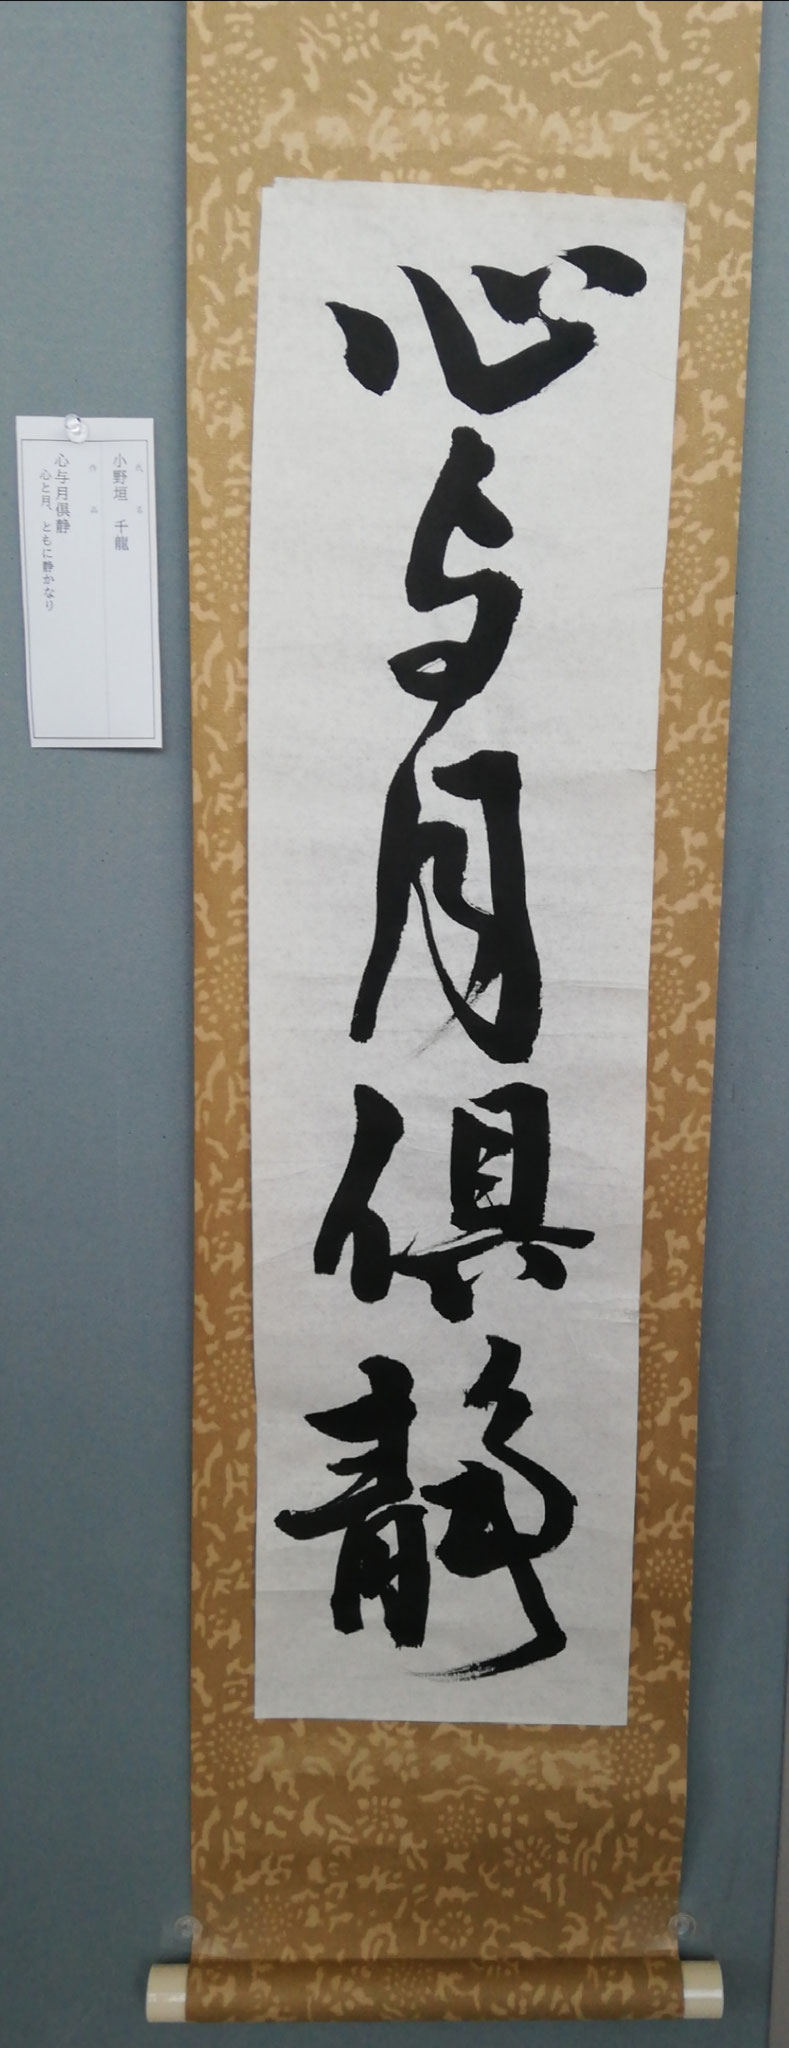 心与月倶静
氏名
小野垣 千龍
作品
心与月倶静
心と月、ともに静かなり